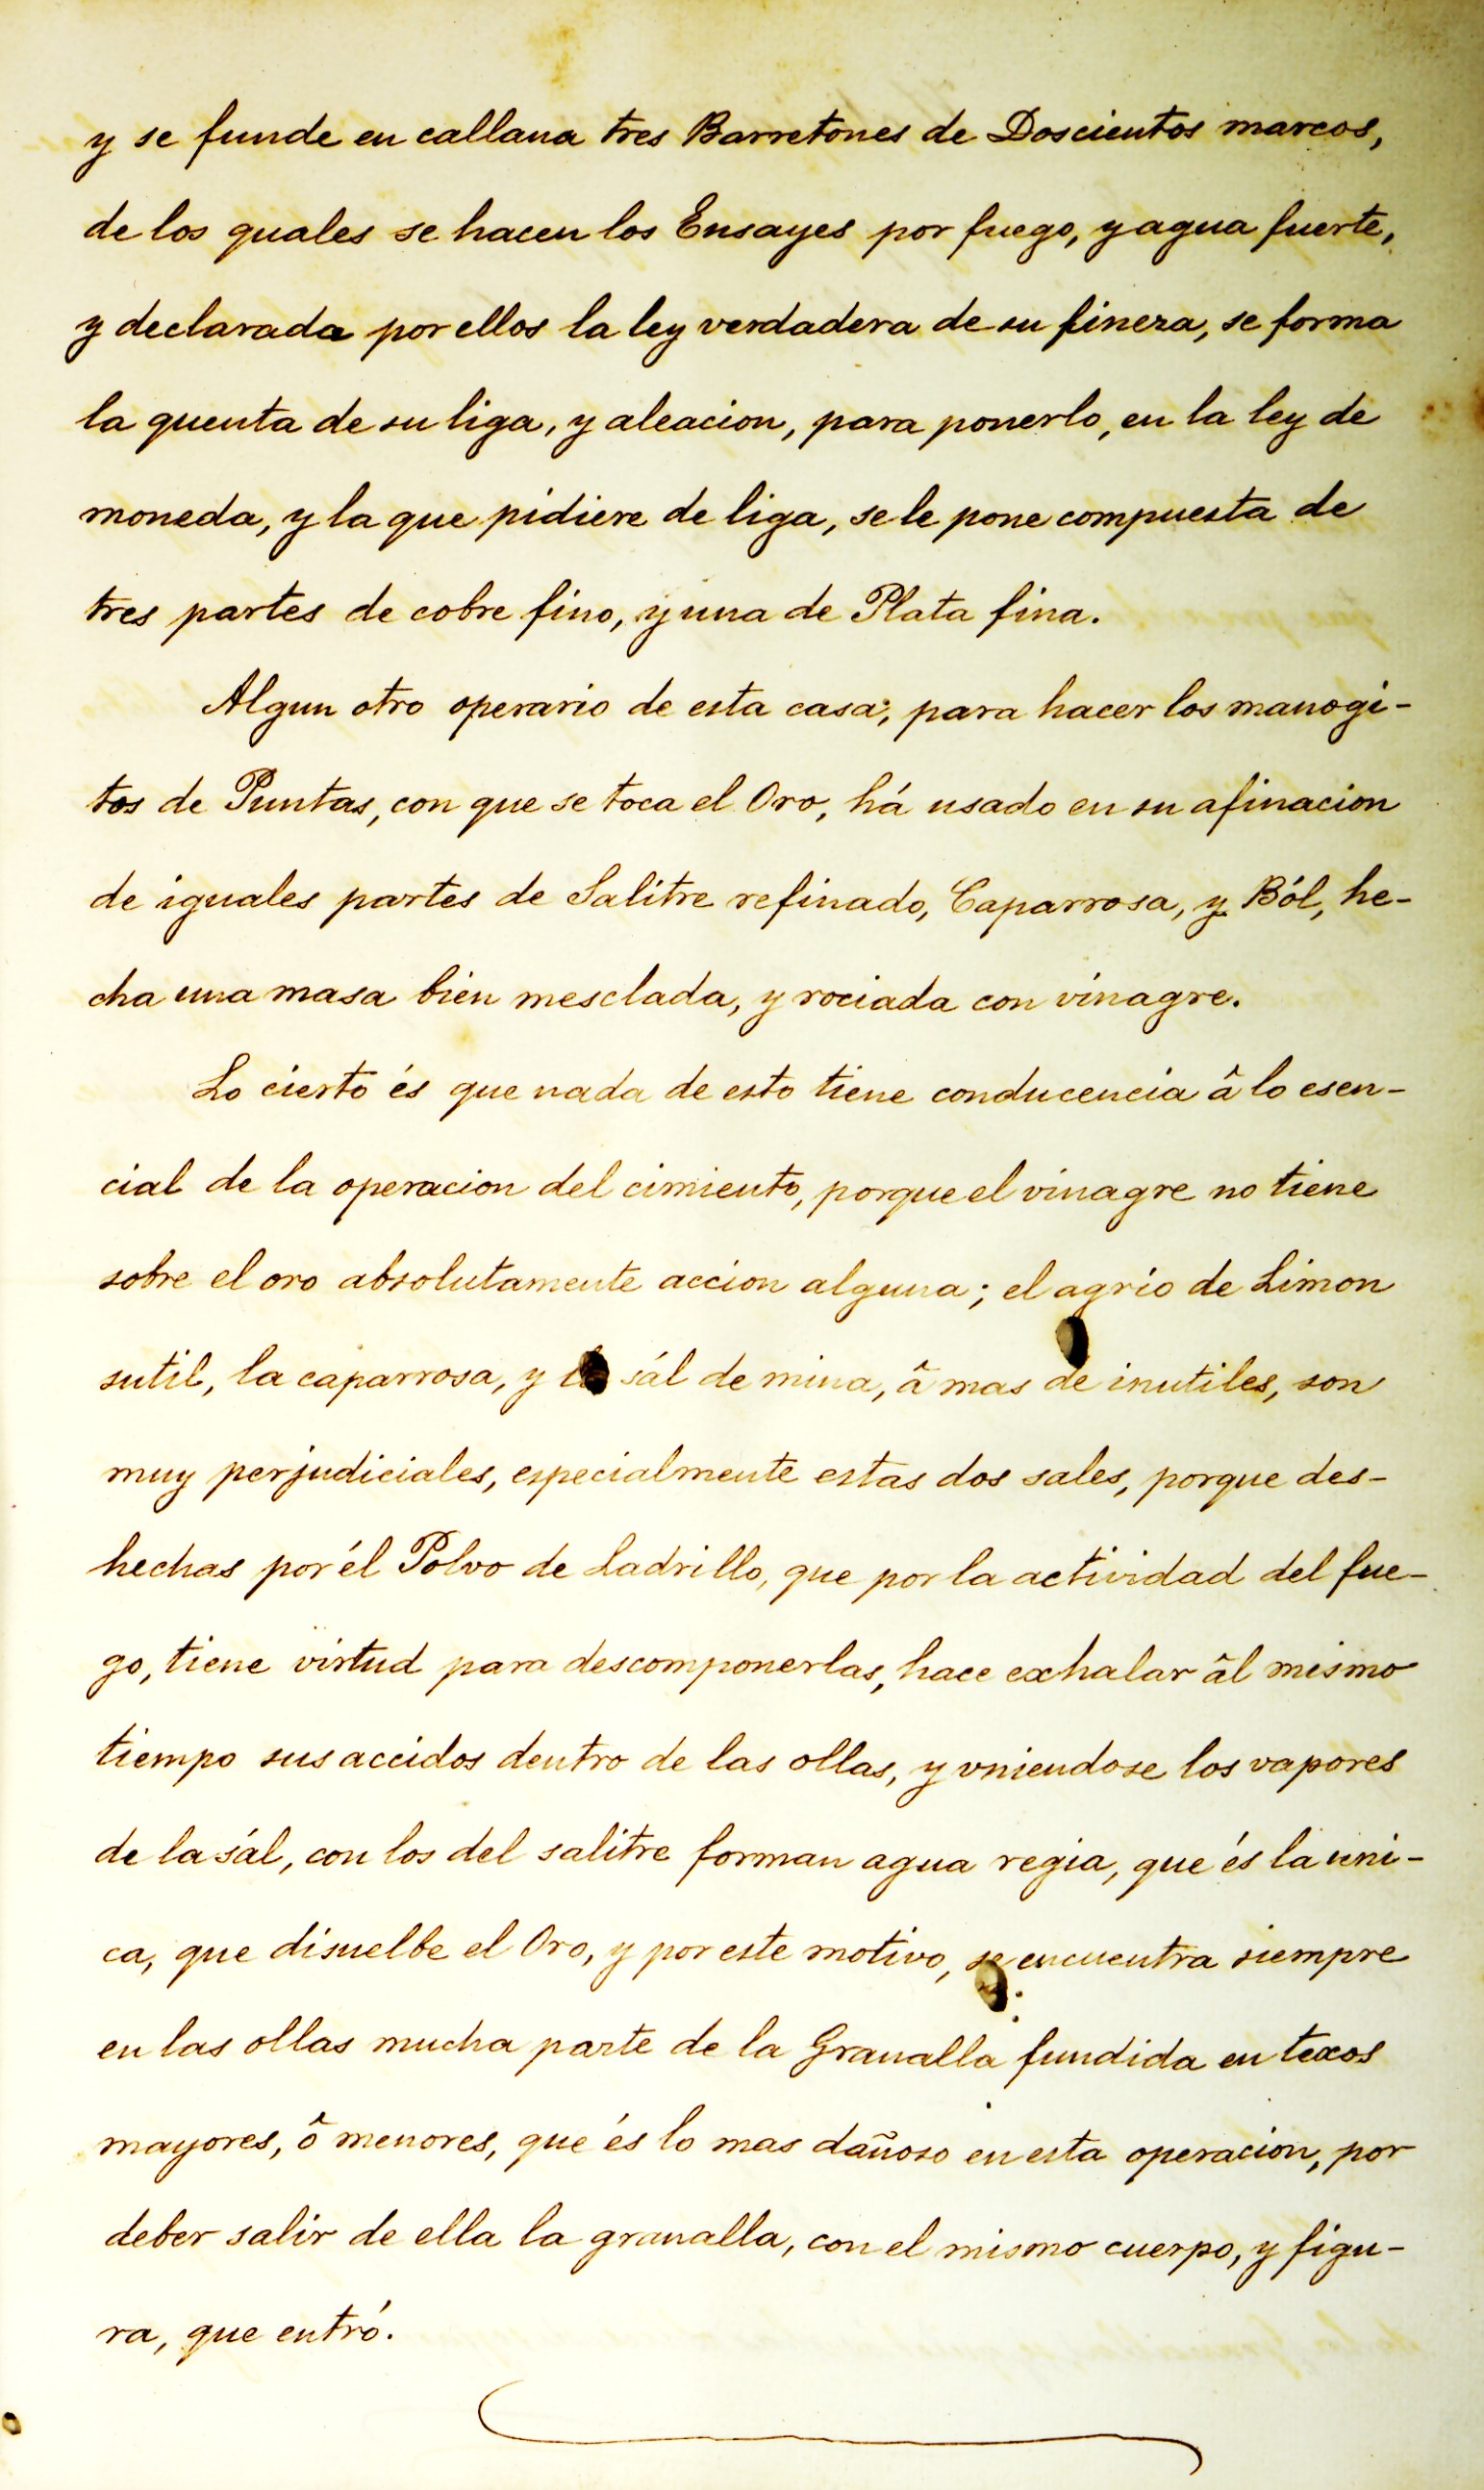 y se funde en callana tres Barretones de Doscientos marcos,
de los quales se hacen los Ensayes por fuego, y agua fuerte,
y declarada por ellos la ley verdadera de su fineza, se forma
la quenta de su liga, y aleacion, para ponerlo, en la ley de
moneda, y la que pidiere de liga, se le pone compuesta de
tres partes de cobre fino, y una de Plata fina.
Algun otro operario de esta casa, para hacer los manogi-
tos de Puntas, con que se toca el Oro, há usado en su afinacion
de iguales partes de Salitre refinado, Caparrosa, y Ból, he-
cha una masa bien mesclada, y rociada con vinagre.
Lo cierto és que nada de esto tiene conducencia â lo esen-
cial de la operacion del cimiento, porque el vinagre no tiene
sobre el oro absolutamente accion alguna; el agrio de Limon
sutil, la caparrosa, y sál de mina, â mas de inutiles, son
muy perjudiciales, especialmente estas dos sales, porque des-
hechas por él Polvo de Ladrillo, que por la actividad del fue-
go, tiene virtud para descomponerlas, hace exhalar âl mismo
tiempo sus accidos dentro de las ollas, y vniendose los vapores
de la sál, con los del salitre forman agua regia, que és la uni-
ca, que disuelbe el Oro, y por este motivo, se encuentra siempre
en las ollas mucha parte de la Granalla fundida en texos
mayores, ô menores, que és lo mas dañoso en esta operacion, por
deber salir de ella la granalla, con el mismo cuerpo, y figu-
ra, que entró.